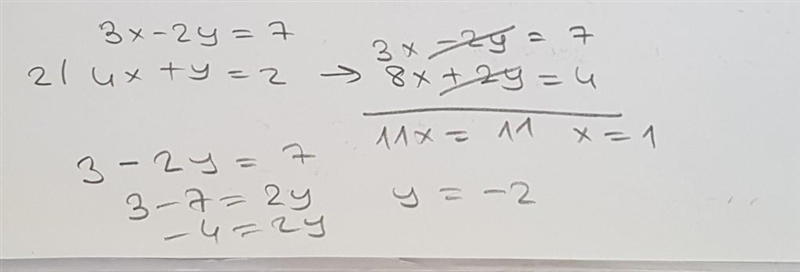 3x-2y=7
2/ 4x+y=2 →
3x-2y=7
8x+2y=4
11x=11 x=1
3-2y=7
3-7=2y
-4=2y
y=-2